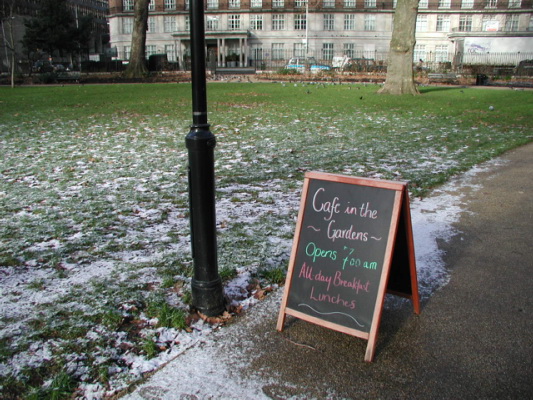 Cafe in the
~ Gardens ~
Opens 7:00 am
All day Breakfast
Lunches